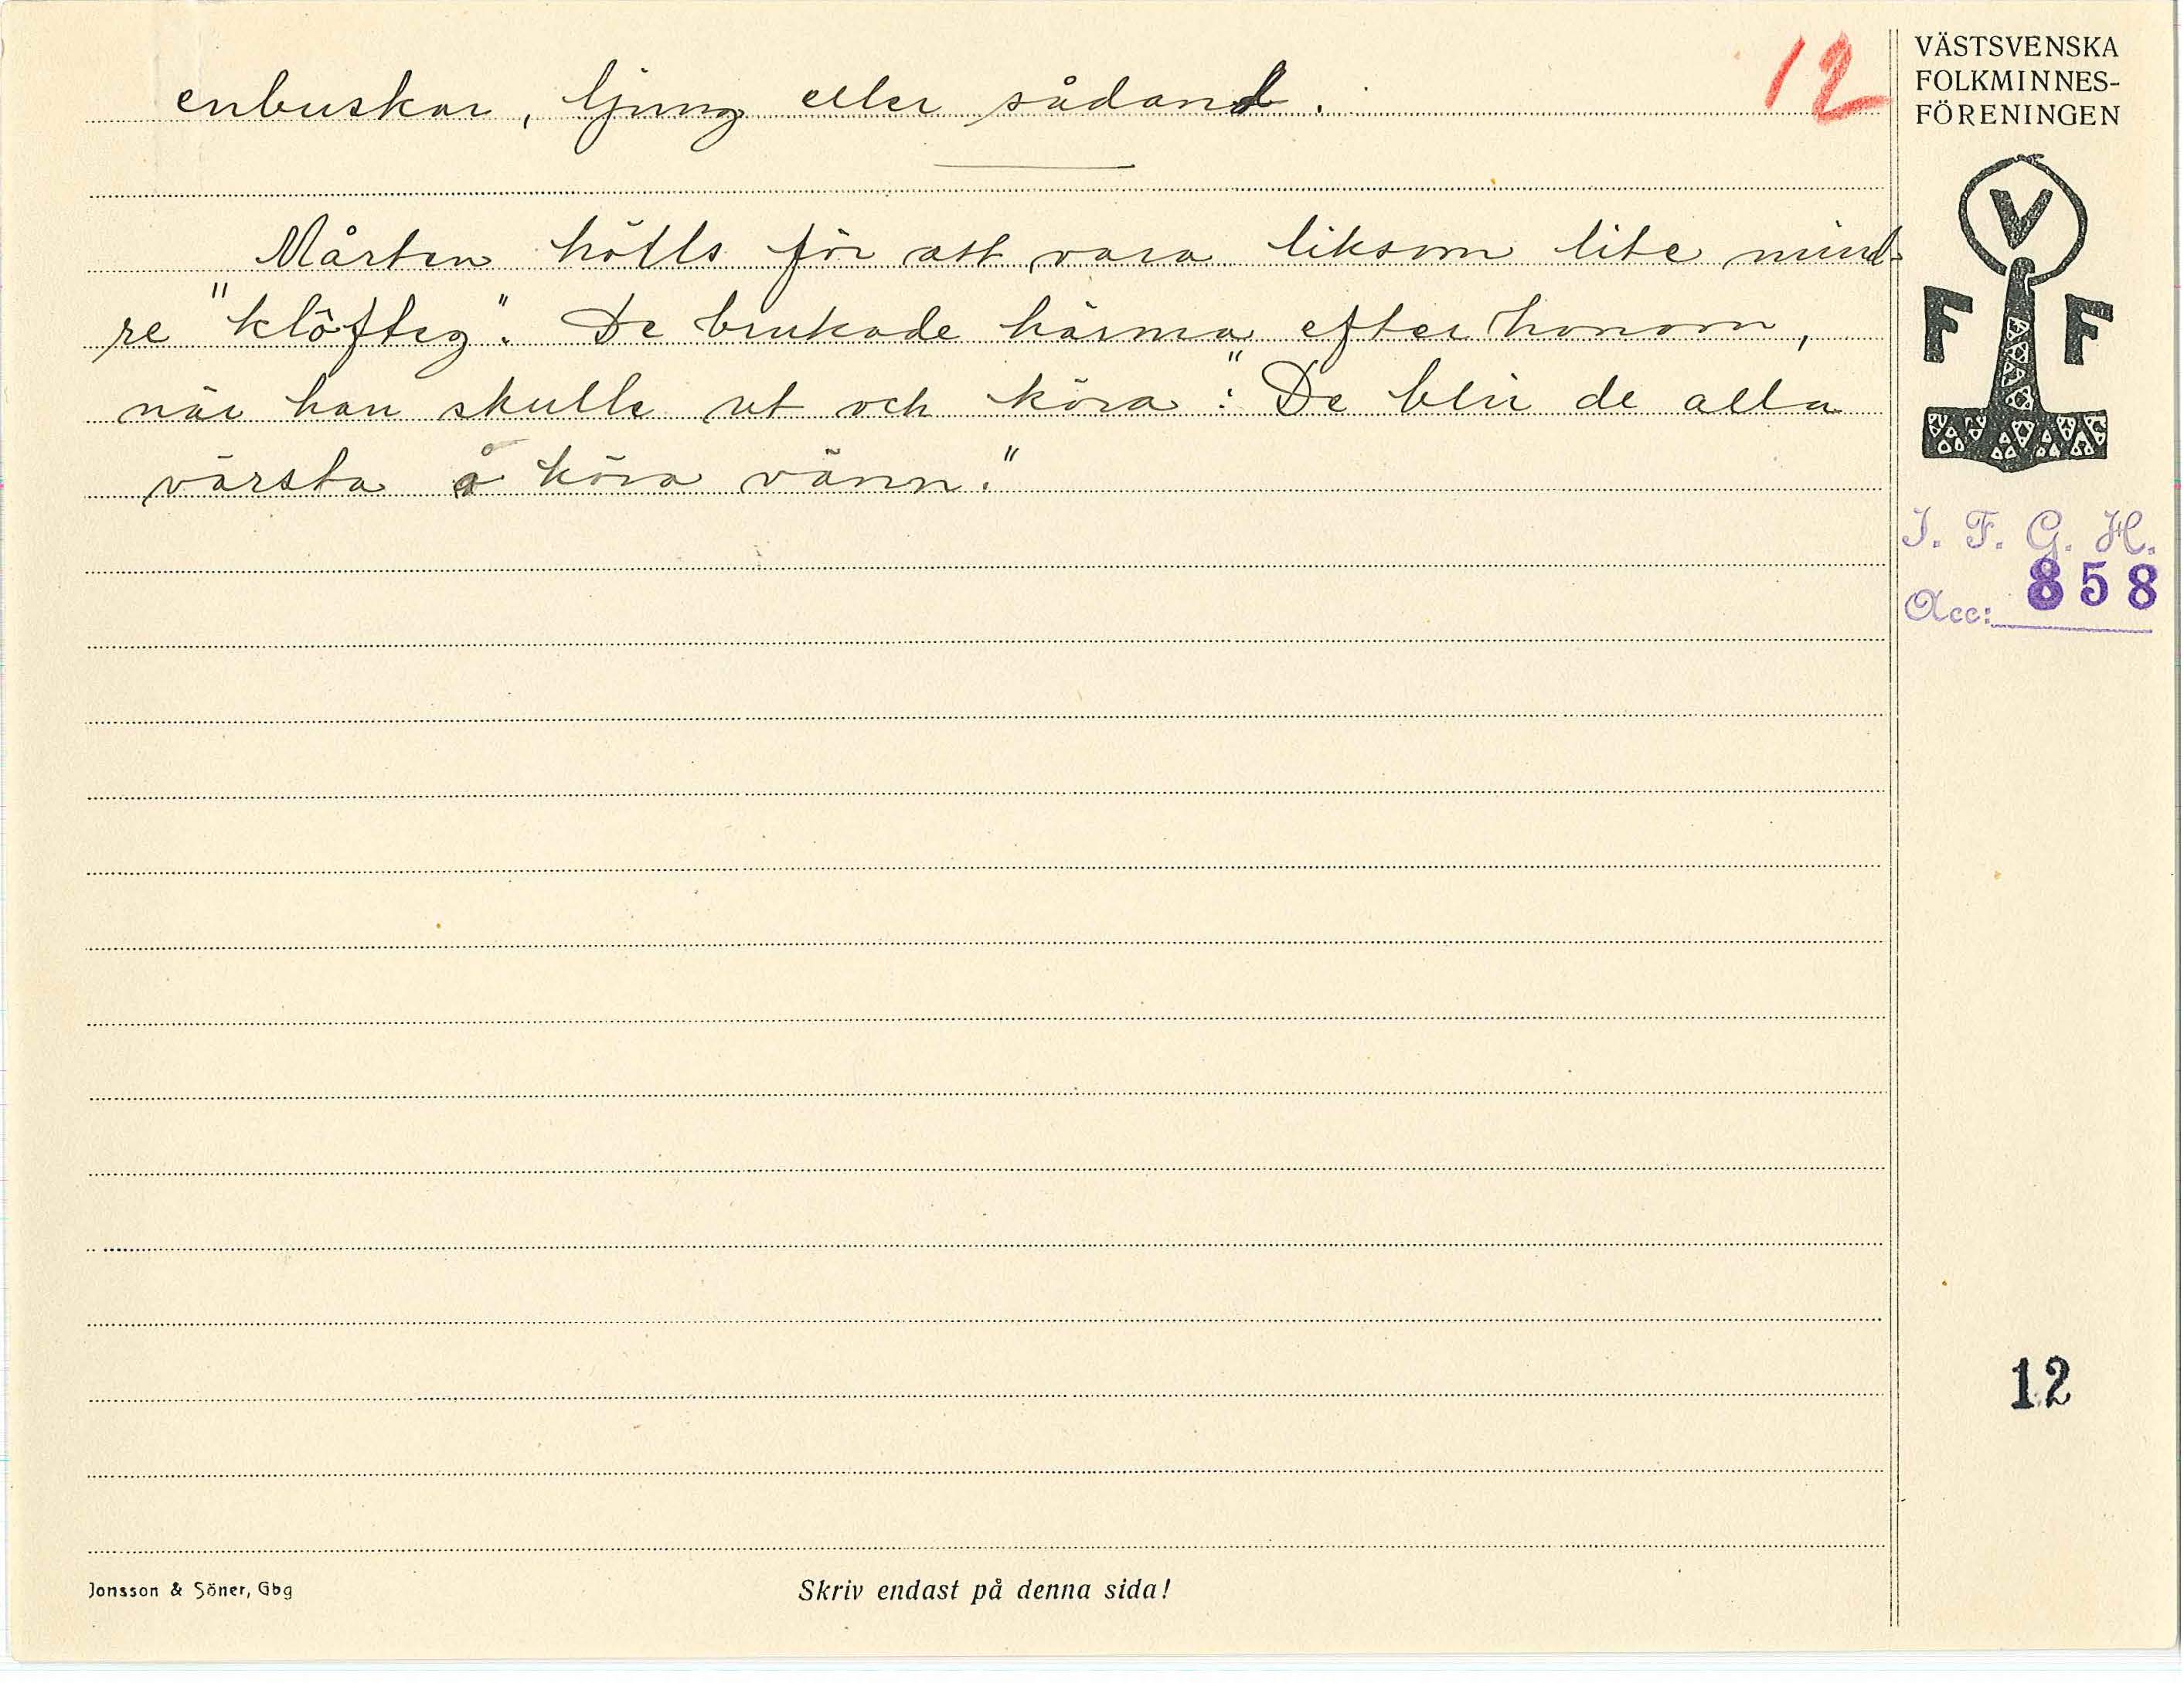 enbuskar, ljung eller sådant.
12
Mårten hölls för att vara liksom lite mind-
re "klöfteg". De brukade härma efter honom,
när han skulle ut och köra: "De blir de alla
värsta å köra vänn."
VÄSTSVENSKA
FOLKMINNES-
FÖRENINGEN
V
F F
I. F. G. H.
Acc: 858
12
Jonsson & Söner, Gbg
Skriv endast på denna sida!